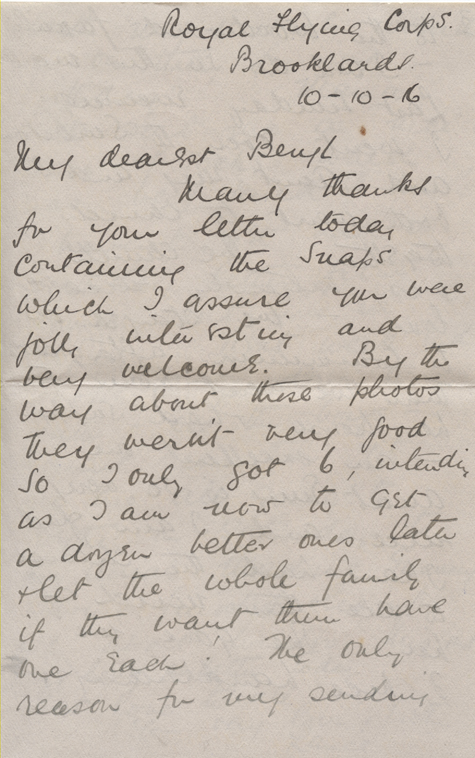 Royal Flying Corps.
Brooklands.
10-10-16
My dearest Beryl
Many thanks
for your letter today
containing the snaps
which I assure you were
jolly interesting and
very welcome. By the
way about those photos
they wern't very good
so I only got 6, intending
as I am now to get
a dozen better ones later
+ let the whole family
if they want them have
one each! The only
reason for my sending